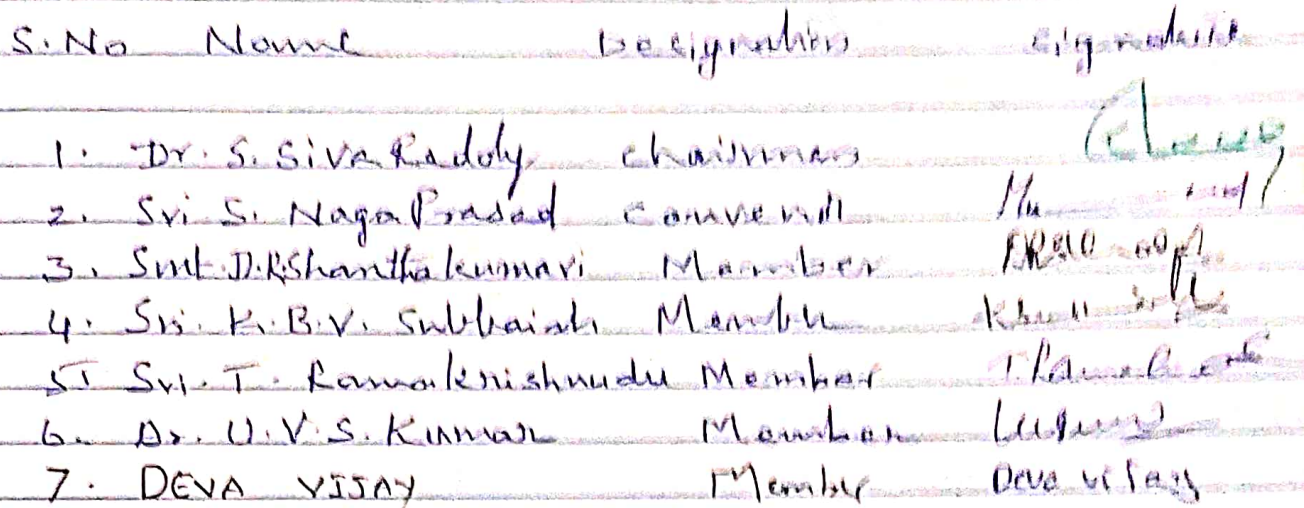 S.No Name Designation Signature
1. Dr. S. Siva Reddy Chairman
2. Sri S. Naga Prasad Convenor
3. Smt. D.R.Shantha kumari Member
4. Sri. K.B.V. Subbaiah Member
5. Sri. T. Ramakrishnudu Member
6. Dr. U.V.S. Kumar Member
7. DEVA VIJAY Member Deva vijay